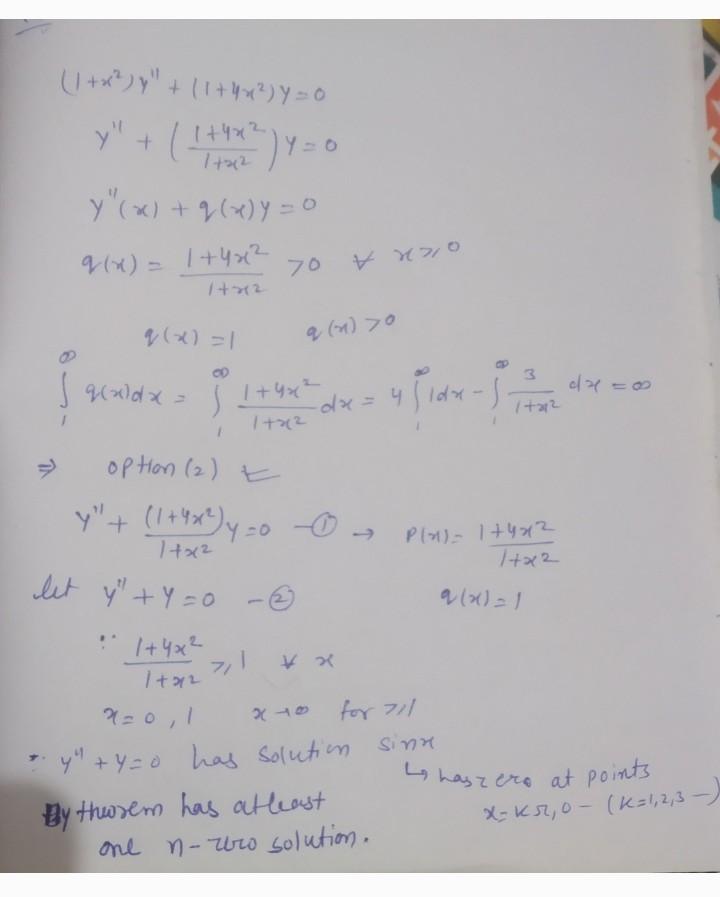 (1+x²)y'' + (1+4x²)y=0
y'' + ( (1+4x²)/(1+x²) ) y=0
y''(x) + q(x)y = 0
q(x) = (1+4x²)/(1+x²) >0 ∀ x≥0
q(x) =1 q(x) >0
∫₁^∞ q(x)dx = ∫₁^∞ (1+4x²)/(1+x²) dx = 4∫₁^∞ 1dx - ∫₁^∞ 3/(1+x²) dx = ∞
⇒ option (2)
y'' + (1+4x²)/(1+x²) y=0 -① → P(x)= (1+4x²)/(1+x²)
let y'' + y = 0 -② q(x)=1
∵ (1+4x²)/(1+x²) ≥1 ∀ x
x=0,1 x→∞ for ≥1
∵ y'' + y=0 has solution sinx
↳ has zero at points
x= kπ,0 - (k=1,2,3 -)
By theorem has atleast
one n-zero solution.